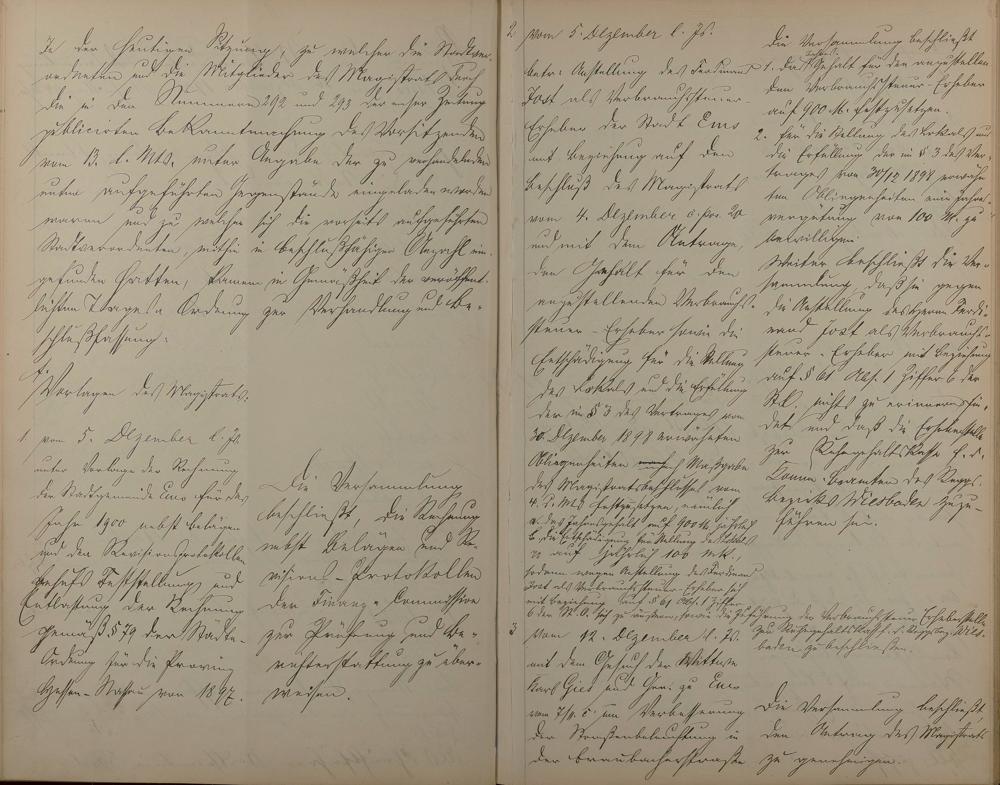 In der heutigen Sitzung, zu welcher die Stadtver-
ordneten und die Mitglieder des Magistrats durch
die in den Nummern 292 und 293 der Emser Zeitung
publicirten Bekanntmachung des Vorsitzenden
vom 13. l. Mts. unter Angabe der zu verhandelnden
unten aufgeführten Gegenstände eingeladen worden
waren und zu welcher sich die vorseits aufgeführten
Stadtverordneten, mithin in beschlußfähiger Anzahl ein-
gefunden hatten, kamen in Gemäßheit der veröffent-
lichten Tages-Ordnung zur Verhandlung und Be-
schlußfassung:
Vorlagen des Magistrats.
1. vom 5. Dezember l. Js.
unter Vorlage der Rechnung
der Stadtgemeinde Ems für das
Jahr 1900 nebst Belägen
und den Revisionsprotokollen
behufs Feststellung und
Entlastung der Rechnung
gemäß § 79 der Städte-
Ordnung für die Provinz
Hessen-Nassau von 1897.
Die Versammlung
beschließt, die Rechnung
nebst Belägen und Re-
visions-Protokollen
der Finanz-Commission
zur Prüfung und Be-
richterstattung zu über-
weisen.
2 vom 5. Dezember l. Js.
betr. Anstellung des Ferdinand
Jost als Verbrauchssteuer-
Erheber der Stadt Ems
mit Beziehung auf den
Beschluß des Magistrats
vom 4. Dezember c. pos. 20
und mit dem Antrage,
den Gehalt für den
anzustellenden Verbrauchs-
steuer-Erheber sowie die
Entschädigung für die Stellung
des Lokals und die Erfüllung
der in § 3 des Vertrages vom
30. Dezember 1898 erwähnten
Obliegenheiten nach Maßgabe
des Magistratsbeschlusses vom
4. d. Mts festzusetzen, nämlich
a. des Jahresgehalts auf 900 M. jährlich
b. die Entschädigung für Stellung des Lokals
auf jährlich 100 Mk.,
sodann wegen Anstellung des Ferdinand
Jost als Verbrauchssteuer-Erheber
mit Beziehung auf § 61 Abs. 1 Ziffer
6 der St. O. sich zu äußern, sowie die Zuführung der Verbrauchssteuer-Erheberstelle
zur Ruhegehaltskasse f. d. Regsbez. Wies-
baden zu beschließen.
Die Versammlung beschließt
1. Das Gehalt für den anzustellen
den Verbrauchssteuer-Erheber
auf 900 M. festzusetzen.
2. für die Stellung des Lokals und
die Erfüllung der in § 3 des Ver-
trages von 30/12 1898 erwähn-
ten Obliegenheiten eine Jahres-
vergütung von 100 M. zu
bewilligen.
Weiter beschließt die Ver-
sammlung, daß sie gegen
die Anstellung des Herrn Ferdi-
nand Jost als Verbrauchs-
steuer-Erheber mit Beziehung
auf § 61 Abs. 1 Ziffer 6 der
St. O. nichts zu erinnern fin-
det und daß die Erheberstelle
zur Ruhegehaltskasse f. d.
Komm. Beamten des Regs.
Bezirks Wiesbaden zuzu-
führen sei.
3 vom 12. Dezember l. Js.
mit dem Gesuch der Wittwe
Karl Gies und Gen. zu Ems
vom 7/11. c. um Verbesserung
der Straßenbeleuchtung in
der Braubacherstraße
Die Versammlung beschließt,
den Antrag des Magistrats
zu genehmigen.